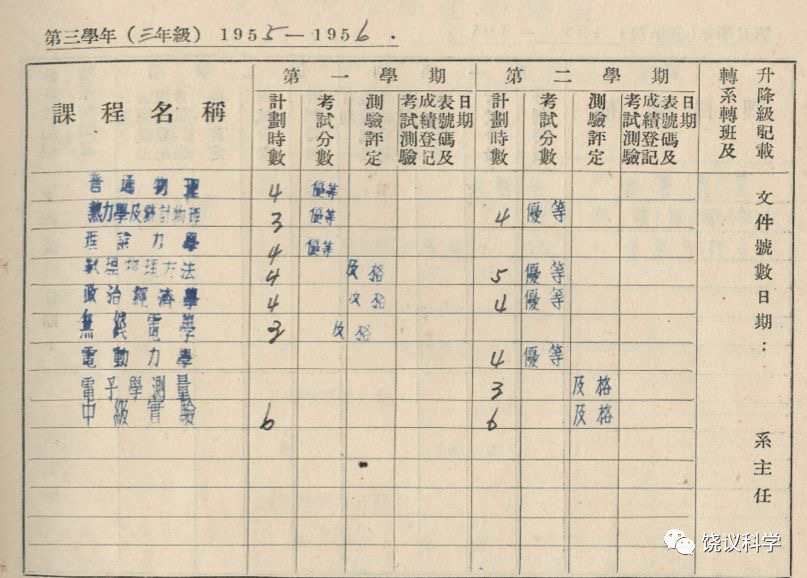 第三學年（三年級）1955—1956.
課程名稱
第一學期
計劃時數
考試分數
測驗評定
考試測驗成績登記表號碼及日期
第二學期
計劃時數
考試分數
測驗評定
考試測驗成績登記表號碼及日期
轉系轉班及升降級記載
文件號數日期：
系主任
普通物理 4 優等
熱力學及統計物理 3 優等 4 優等
理論力學 4 優等
數理物理方法 4 及格 5 優等
政治經濟學 4 及格 4 優等
無綫電學 3 及格
電動力學 4 優等
電子學測量 3 及格
中級實驗 6 6 及格
饶议科学